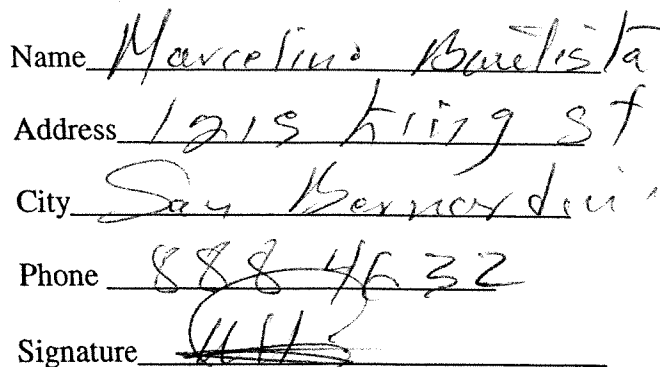 Name Marcelino Bautista
Address 1215 King st
City San Bernardino
Phone 888 4632
Signature